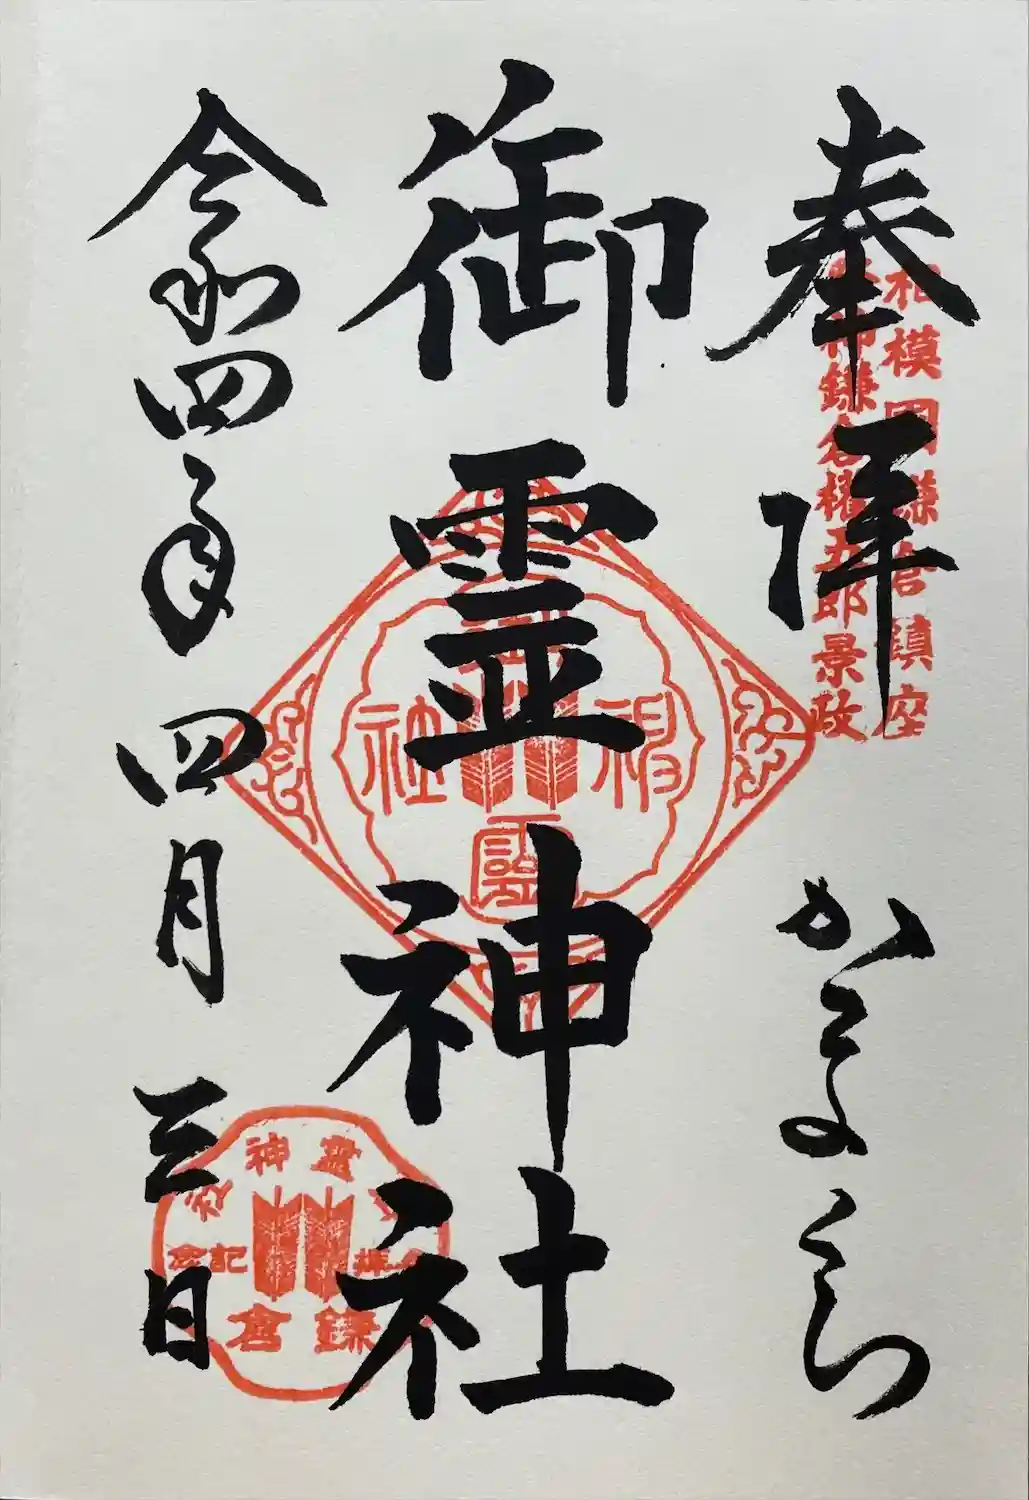 奉拝
相模國鎌倉鎮座
祭神鎌倉権五郎景政
かまくら
御霊神社
御霊神社
令和四年
四月
三日
御霊神社
参拝記念
鎌倉